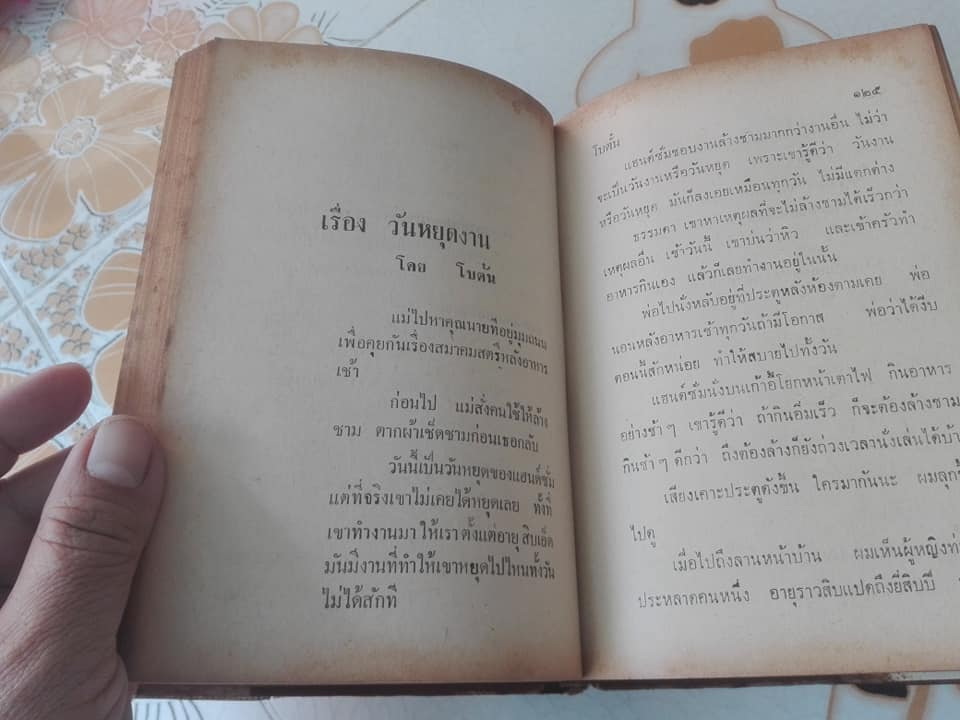 เรื่อง วันหยุดงาน
โดย โบตั๋น
แม่ไปหาคุณนายที่อยู่มุมถนน
เพื่อคุยกันเรื่องสมาคมสตรีหลังอาหาร
เช้า
ก่อนไป แม่สั่งคนใช้ให้ล้าง
ชาม ตากผ้าเช็ดชามก่อนเธอกลับ
วันนี้เป็นวันหยุดของแฮนด์ซั่ม
แต่ที่จริงเขาไม่เคยได้หยุดเลย ทั้งที่
เขาทำงานมาให้เราตั้งแต่อายุสิบเอ็ด
มันมีงานที่ทำให้เขาหยุดไปไหนทั้งวัน
ไม่ได้สักที
๑๒๕
โบตั๋น
แฮนด์ซั่มชอบงานล้างชามมากกว่างานอื่น ไม่ว่า
จะเป็นวันงานหรือวันหยุด เพราะเขารู้ดีว่า วันงาน
หรือวันหยุด มันก็ลงเอยเหมือนทุกวัน ไม่มีแตกต่าง
ธรรมดา เขาหาเหตุผลที่จะไม่ล้างชามได้เร็วกว่า
เหตุผลอื่น เช้าวันนี้ เขาบ่นว่าหิว และเข้าครัวทำ
อาหารกินเอง แล้วก็เลยทำงานอยู่ในนั้น
พ่อไปนั่งหลับอยู่ที่ประตูหลังห้องตามเคย พ่อ
นอนหลังอาหารเช้าทุกวันถ้ามีโอกาส พ่อว่าได้งีบ
ตอนนี้สักหน่อย ทำให้สบายไปทั้งวัน
แฮนด์ซั่มนั่งบนเก้าอี้โยกหน้าเตาไฟ กินอาหาร
อย่างช้า ๆ เขารู้ดีว่า ถ้ากินอิ่มเร็ว ก็จะต้องล้างชาม
กินช้า ๆ ดีกว่า ถึงต้องล้างก็ยังถ่วงเวลานั่งเล่นได้บ้า
เสียงเคาะประตูดังขึ้น ใครมากันนะ ผมลุก
ไปดู
เมื่อไปถึงลานหน้าบ้าน ผมเห็นผู้หญิง
ประหลาดคนหนึ่ง อายุราวสิบแปดถึงยี่สิบปี